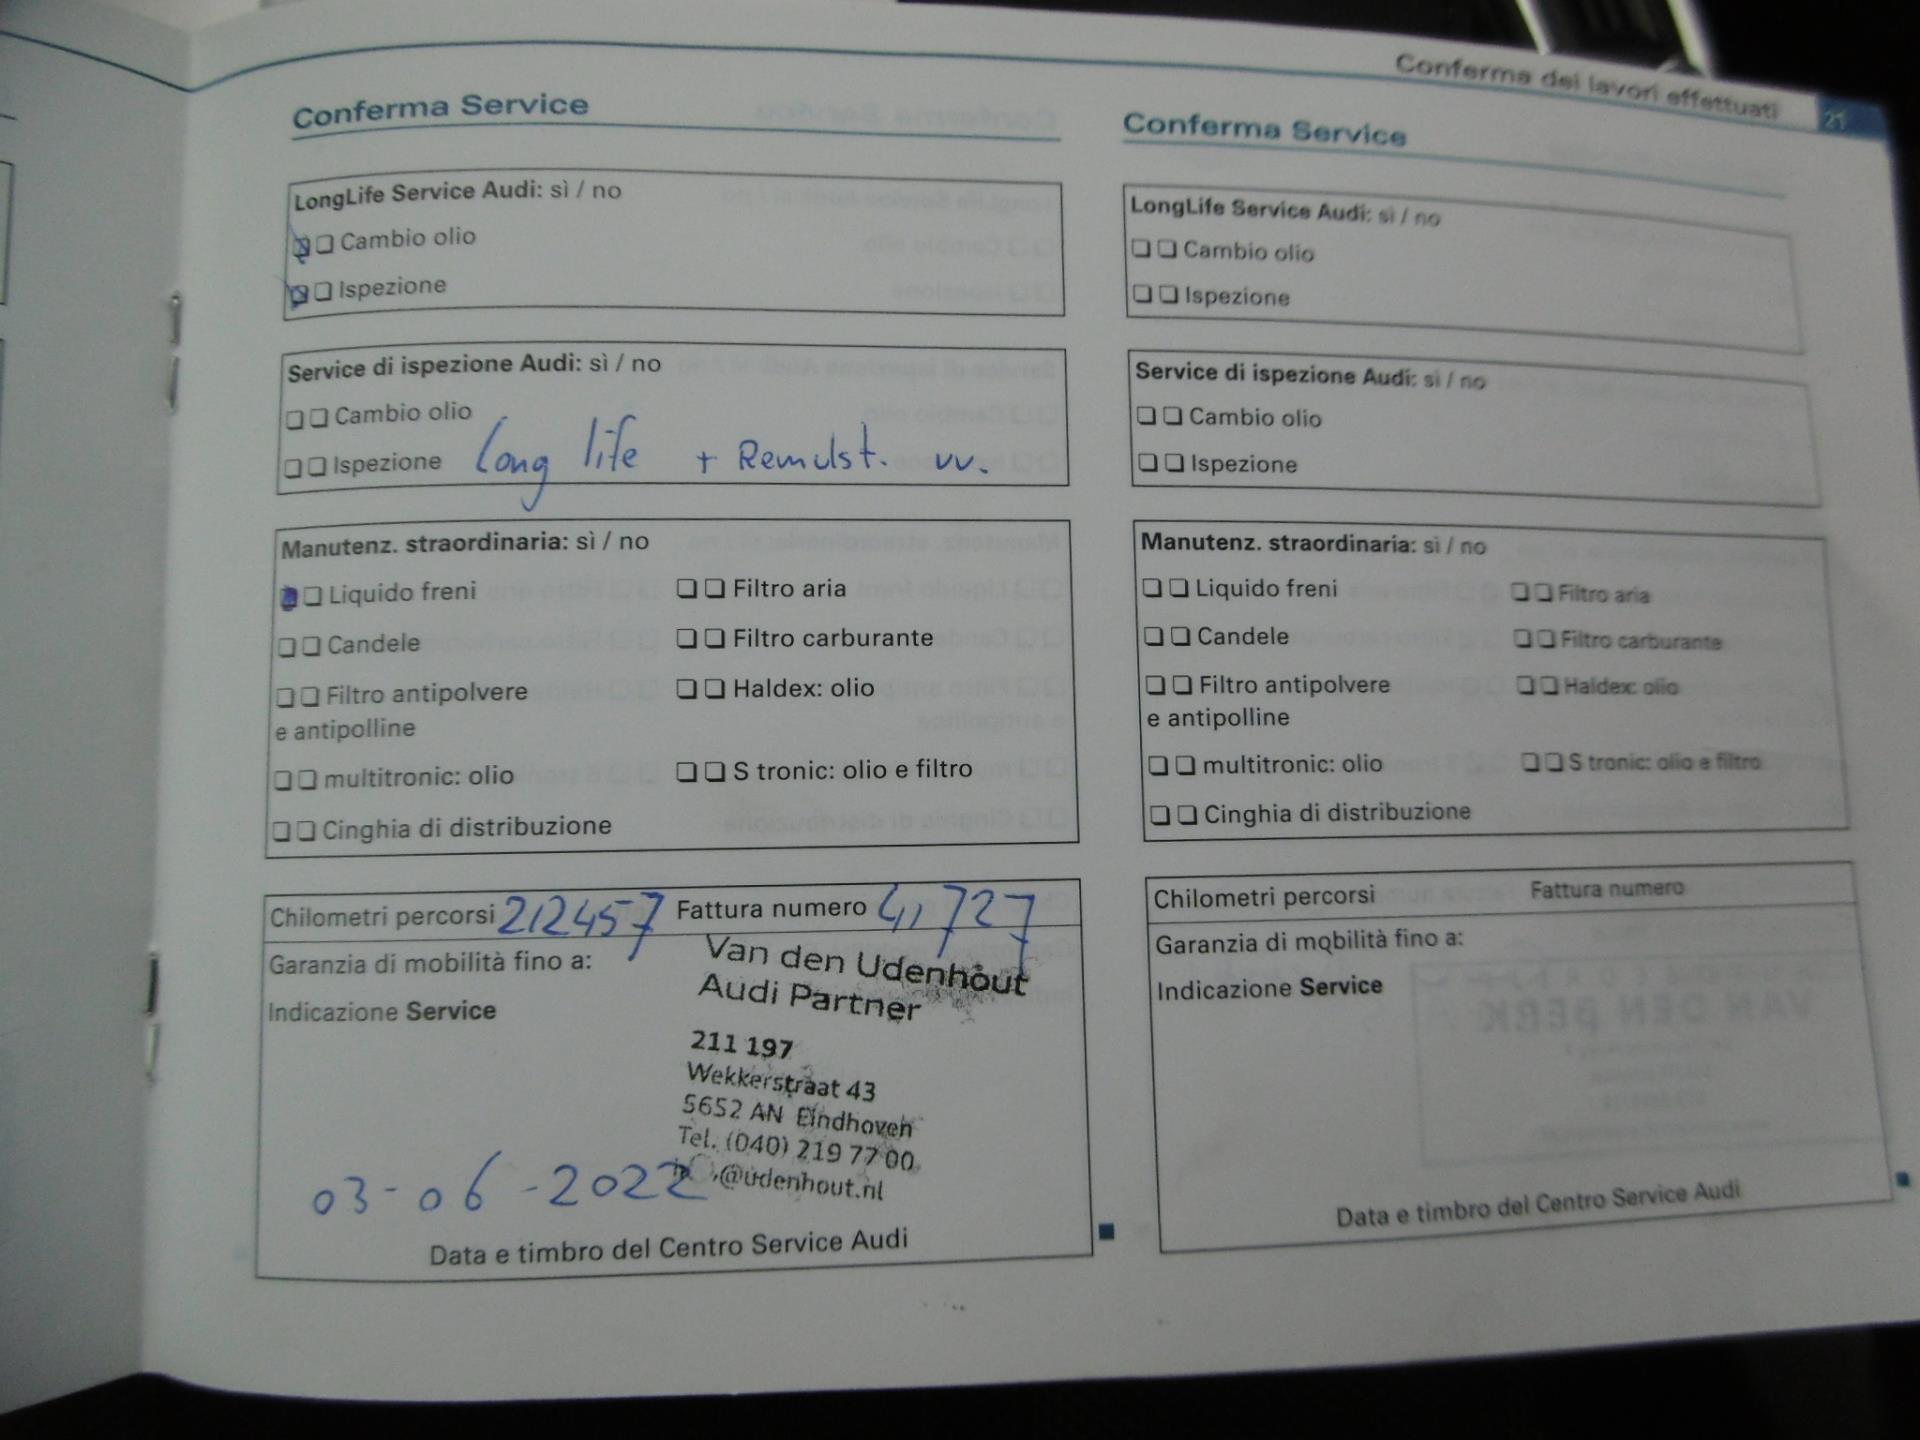 Conferma dei lavori effettuati 21
Conferma Service
LongLife Service Audi: sì / no
Cambio olio
Ispezione
Service di ispezione Audi: sì / no
Cambio olio
Ispezione Long life + Remvlst. vv.
Manutenz. straordinaria: sì / no
Liquido freni
Filtro aria
Candele
Filtro carburante
Filtro antipolvere
e antipolline
Haldex: olio
multitronic: olio
S tronic: olio e filtro
Cinghia di distribuzione
Chilometri percorsi 212457 Fattura numero 41727
Garanzia di mobilità fino a:
Indicazione Service
Van den Udenhout
Audi Partner
211 197
Wekkerstraat 43
5652 AN Eindhoven
Tel. (040) 219 77 00
@udenhout.nl
03-06-2022
Data e timbro del Centro Service Audi
Conferma Service
LongLife Service Audi: sì / no
Cambio olio
Ispezione
Service di ispezione Audi: sì / no
Cambio olio
Ispezione
Manutenz. straordinaria: sì / no
Liquido freni
Filtro aria
Candele
Filtro carburante
Filtro antipolvere
e antipolline
Haldex: olio
multitronic: olio
S tronic: olio e filtro
Cinghia di distribuzione
Chilometri percorsi Fattura numero
Garanzia di mobilità fino a:
Indicazione Service
VAN DEN BERK
Data e timbro del Centro Service Audi